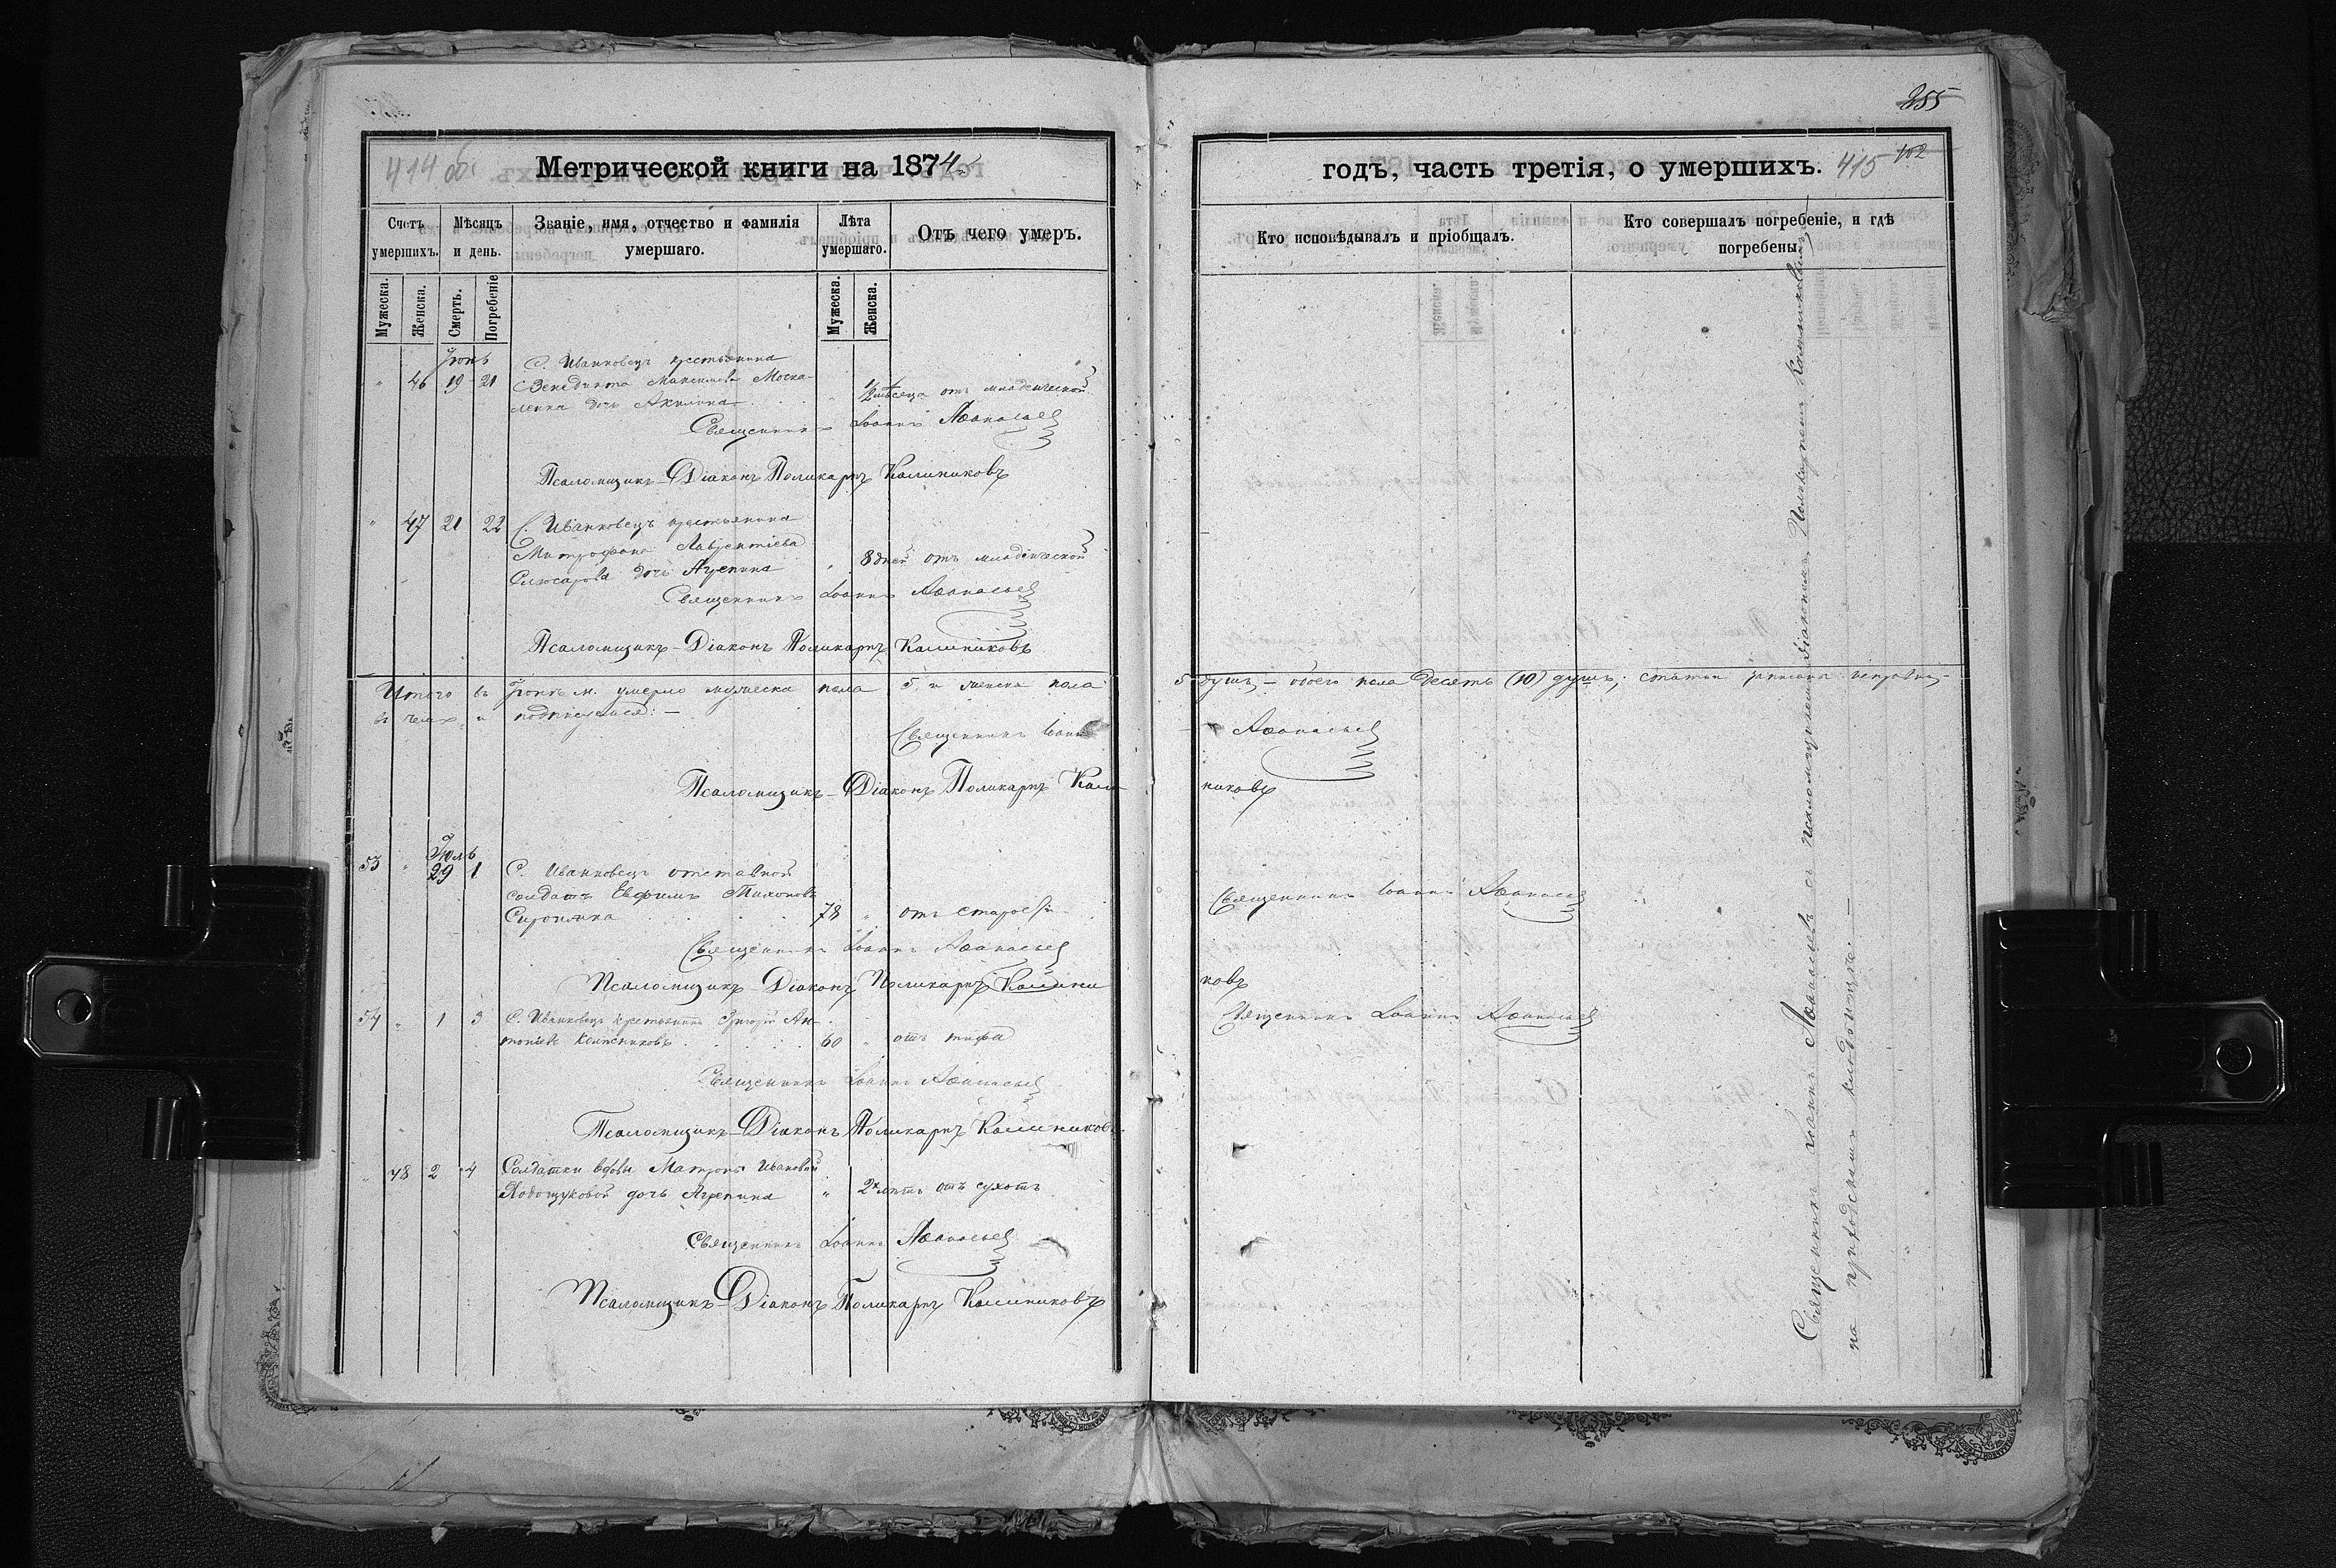 355
414 об.
Метрической книги на 1874
годъ, часть третія, о умершихъ.
415
102
Счетъ умершихъ.
Мѣсяцъ и день.
Званіе, имя, отчество и фамилія умершаго.
Лѣта умершаго.
Отъ чего умеръ.
Кто исповѣдывалъ и пріобщалъ.
Кто совершалъ погребеніе, и гдѣ погребены.
Мужеска.
Женска.
Смерть.
Погребеніе
Мужеска.
Женска.
Іюнь
С. Иванковецъ крестьянина
" 46 19 21 Венедикта Максимова Моска-
ленка дочь Акилина " 1/2 мѣсяца отъ младенческой
Священникъ Іоаннъ Аѳанасьев
Псаломщикъ-Діаконъ Поликарпъ Калиниковъ
" 47 21 22 С. Иванковецъ крестьянина
Митрофана Лаврентіева
Слюсарова дочь Агрепина " 8 дней отъ младенческой
Священникъ Іоаннъ Аѳанасьев
Псаломщикъ-Діаконъ Поликарпъ Калиниковъ
Итого въ Іюнѣ м. умерло мужеска пола 5 и женска пола 5 душъ, – обоего пола десять (10) душъ; статьи записаны исправно,
въ чемъ и подписуемся: —
Священникъ Іоаннъ Аѳанасьев
Псаломщикъ-Діаконъ Поликарпъ Калиниковъ
Іюль
53 " 29 1 С. Иванковецъ отставной
солдатъ Евфимъ Тихоновъ
78 " отъ старости
Священникъ Іоаннъ Аѳанасьев
Священникъ Іоаннъ Аѳанасьев
Псаломщикъ-Діаконъ Поликарпъ Калиниковъ
54 " 1 3 С. Иванковецъ крестьянинъ Григорій Ан-
тоньевъ 60 " отъ тифа
Священникъ Іоаннъ Аѳанасьев
Священникъ Іоаннъ Аѳанасьев
Псаломщикъ-Діаконъ Поликарпъ Калиниковъ
" 48 2 4 Солдатки вдовы Матроны Ивановой
дочь Агрепина " 2хъ лѣтъ отъ сухотъ
Священникъ Іоаннъ Аѳанасьев
Псаломщикъ-Діаконъ Поликарпъ Калиниковъ
Священникъ Іоаннъ Аѳанасьевъ съ псаломщикомъ діакономъ Поликарпомъ Калиниковымъ
на приходскомъ кладбищѣ. —